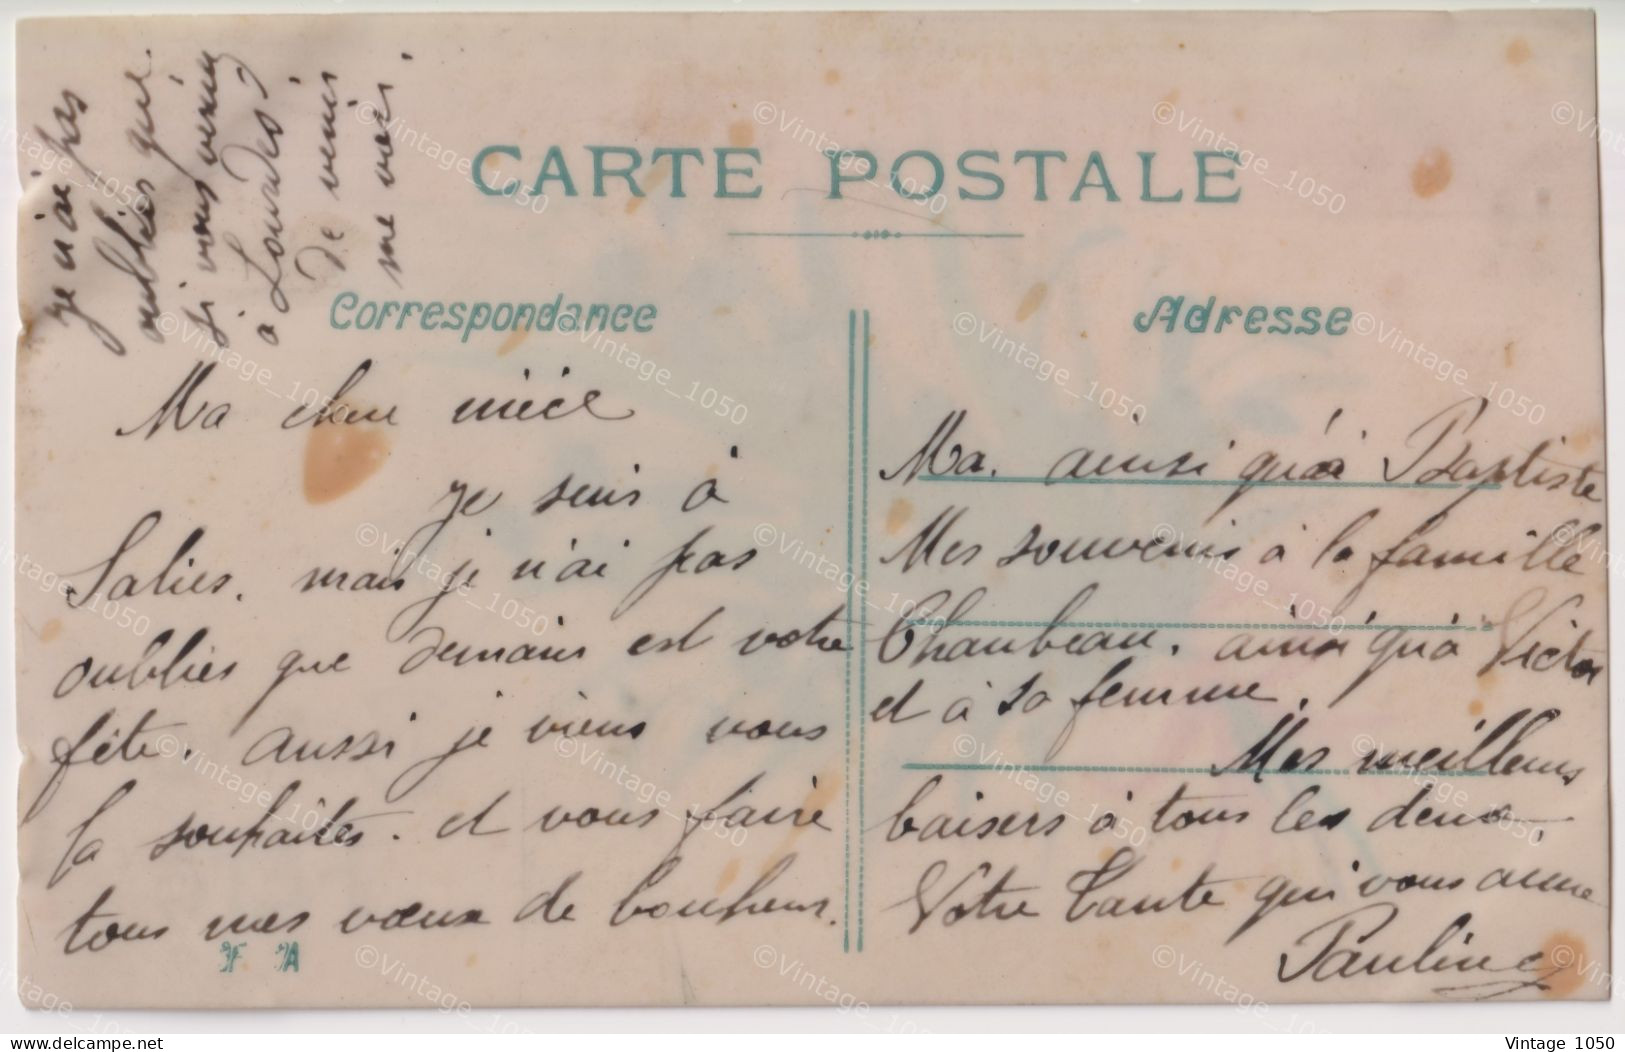 CARTE POSTALE
Correspondance
Adresse
je n'ai pas
oublies que
si vous venin
a Lourdes
De venir
me voir.
Ma chere niéce
je suis à
Salies. mais je n'ai pas
oublies que demain est votre
fête. aussi je viens vous
la souhaites. et vous faire
tous mes vœux de bonheur.
Ma. ainsi qu'à Baptiste
Mes souvenirs à la famille
Chaubeau. ainsi qu'a Victor
et à sa femme.
Mes meilleurs
baisers à tous les deux.
Votre Tante qui vous aime
Pauline
©Vintage_1050
www.delcampe.net
Vintage 1050